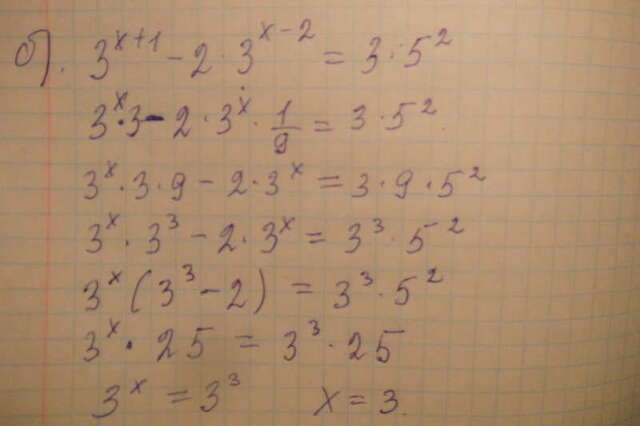 б). 3^{x+1} - 2 · 3^{x-2} = 3 · 5^2
3^x · 3 - 2 · 3^x · \frac{1}{9} = 3 · 5^2
3^x · 3 · 9 - 2 · 3^x = 3 · 9 · 5^2
3^x · 3^3 - 2 · 3^x = 3^3 · 5^2
3^x (3^3 - 2) = 3^3 · 5^2
3^x · 25 = 3^3 · 25
3^x = 3^3 x = 3.